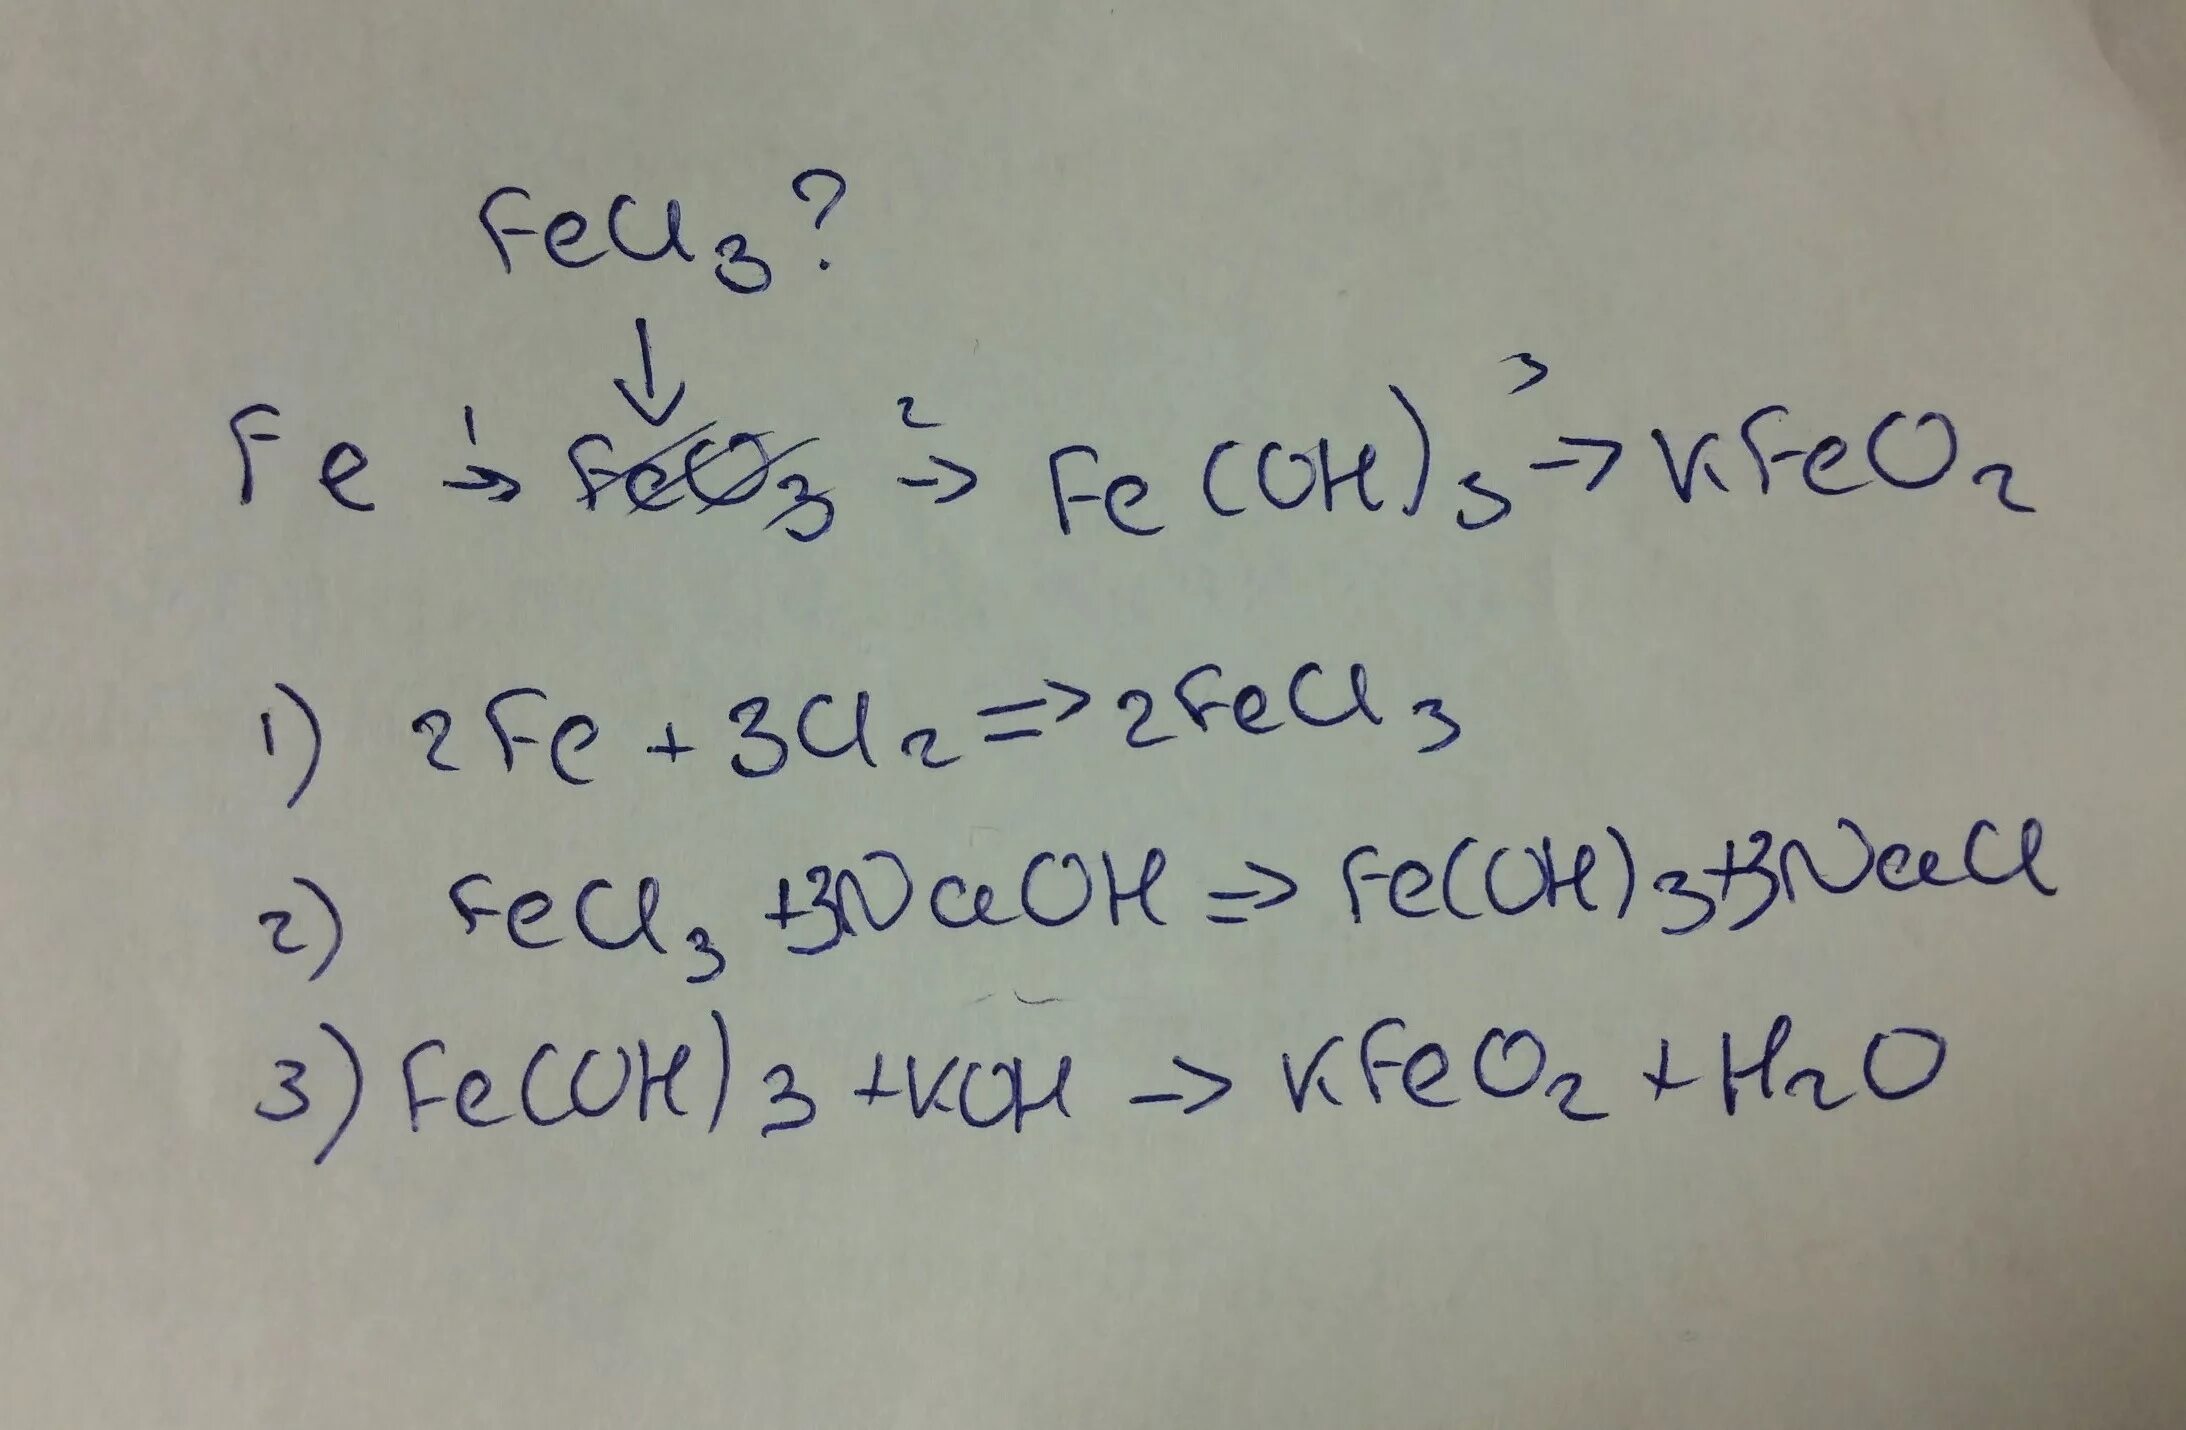 FeCl₃?
↓
Fe ¹→ F̶e̶O̶₃̶ ²→ Fe(OH)₃ ³→ KFeO₂
1) 2Fe + 3Cl₂ => 2FeCl₃
2) FeCl₃ +3NaOH => Fe(OH)₃+3NaCl
3) Fe(OH)₃ +KOH → KFeO₂ + H₂O